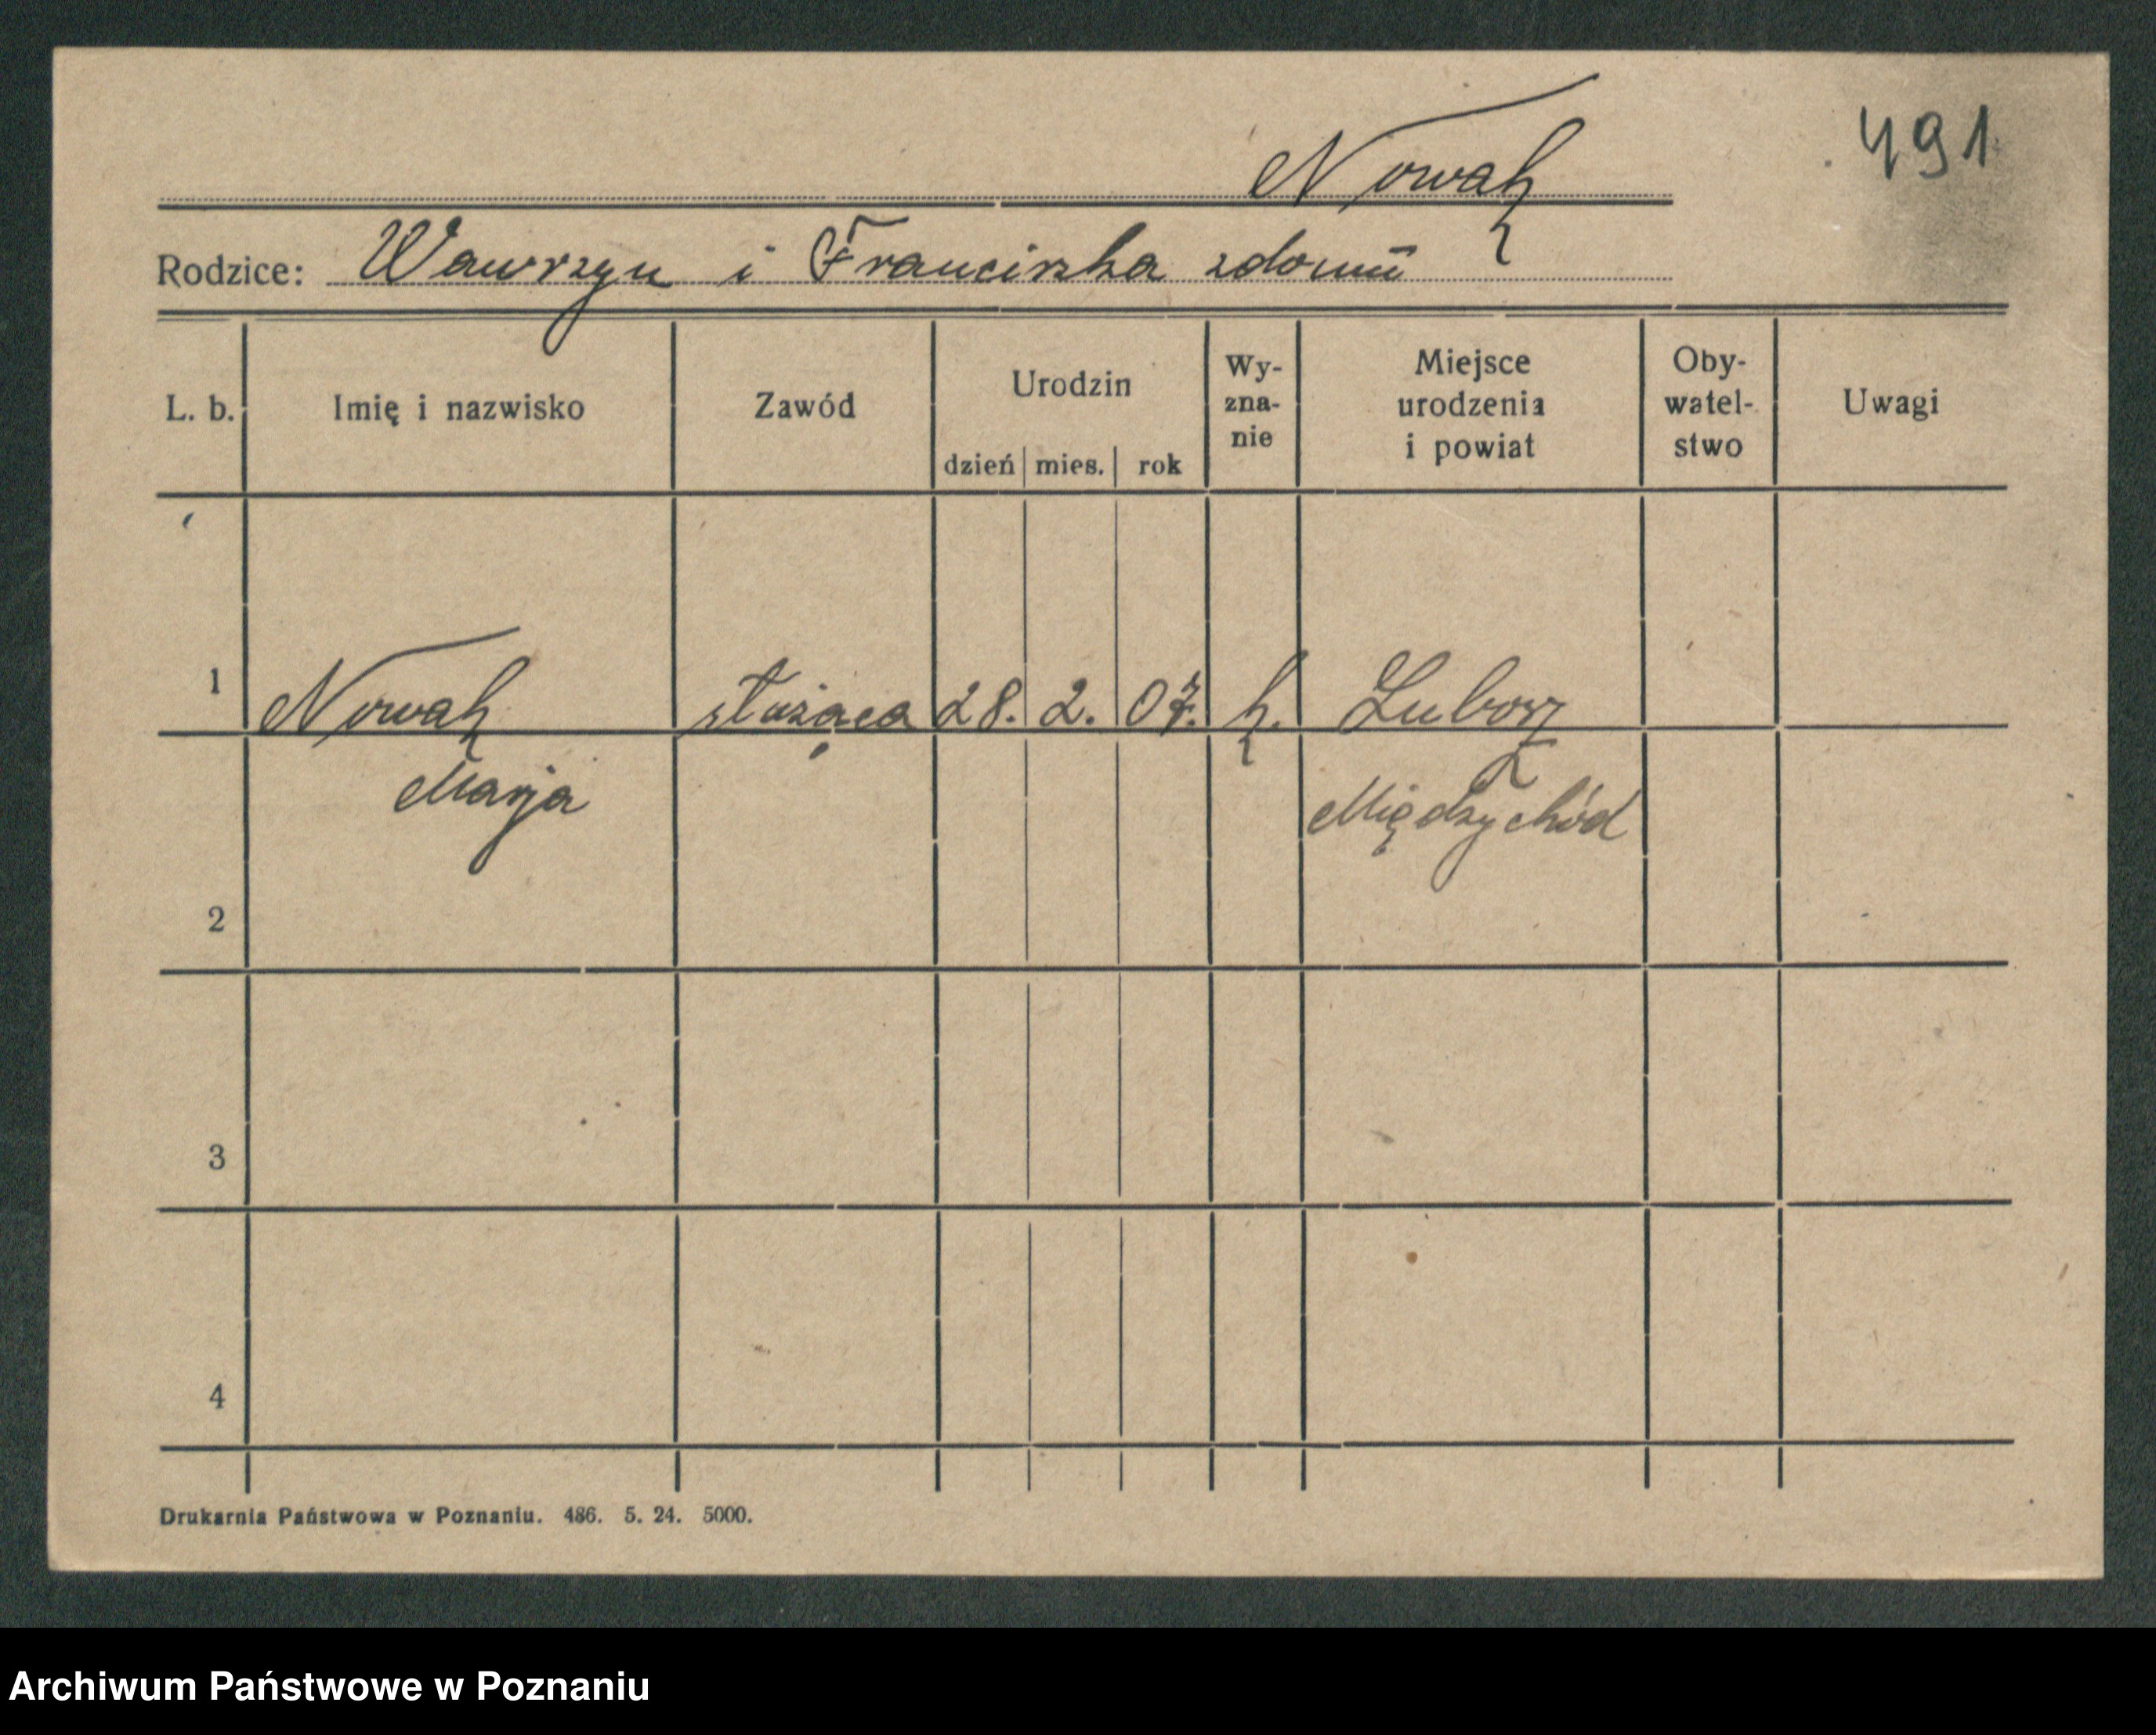 Nowak
491
Rodzice: Wawrzyn i Franciszka zdomu
L. b.
Imię i nazwisko
Zawód
Urodzin
dzień mies. rok
Wy-
zna-
nie
Miejsce
urodzenia
i powiat
Oby-
watel-
stwo
Uwagi
1 Nowak służąca 28. 2. 07. k. Lubosz
Marja Międzychód
2
3
4
Drukarnia Państwowa w Poznaniu. 486. 5. 24. 5000.
Archiwum Państwowe w Poznaniu